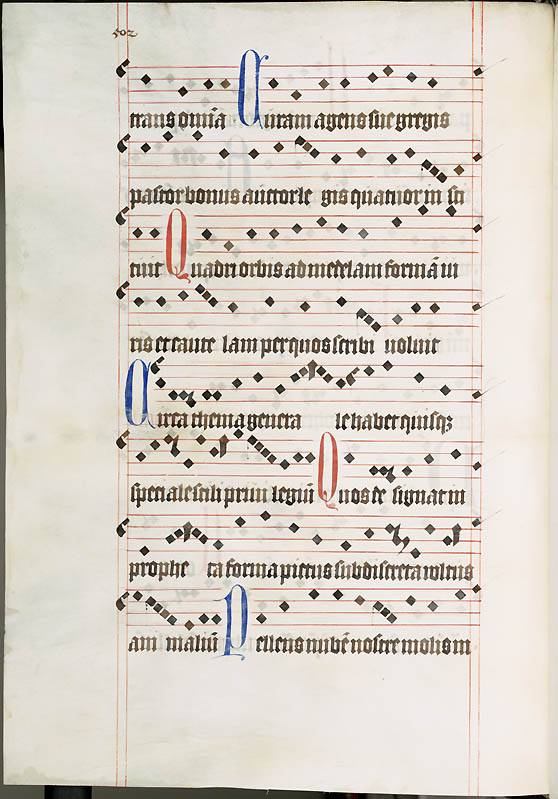 502
trans om̄ia Curam agens sue gregis
pastor bonus auctor le gis quatuor in sti
tuit Quadri orbis ad medelam formā iu
ris et caute lam per quos scribi uoluit
Circa thema genera le habet quisq̃
speciale stili priui legiū Quos de signat in
prophe ta forma pictus sub discreta uultus
ani maliū Pellens nubē nostre molis in